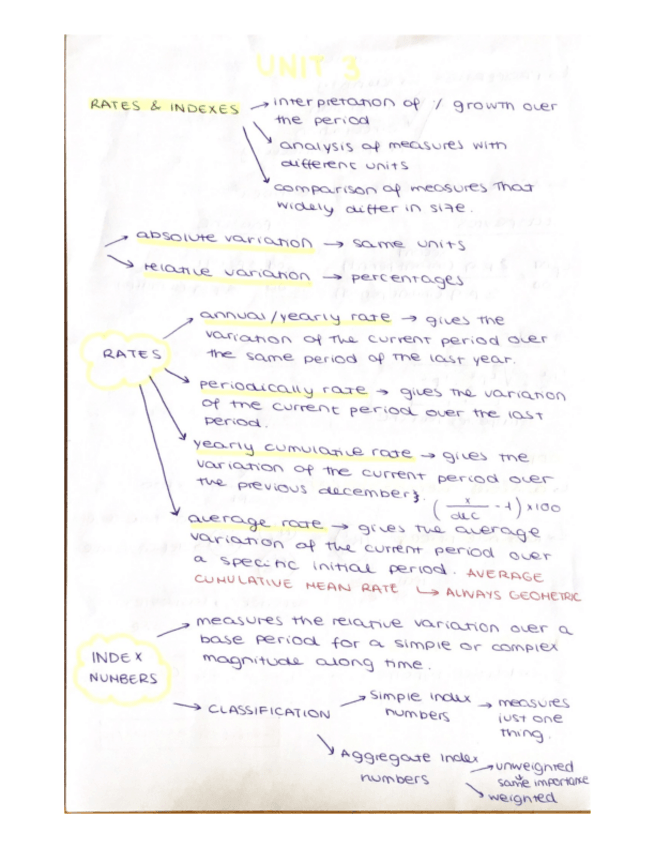 UNIT 3
RATES & INDEXES → interpretation of % growth over
the period
analysis of measures with
different units
comparison of measures that
widely differ in size.
absolute variation → same units
relative variation → percentages
RATES
annual/yearly rate → gives the
variation of the current period over
the same period of the last year.
periodically rate → gives the variation
of the current period over the last
period.
yearly cumulative rate → gives the
variation of the current period over
the previous december.
(x/dec - 1) x100
average rate → gives the average
variation of the current period over
a specific initial period. AVERAGE
CUMULATIVE MEAN RATE ↳ ALWAYS GEOMETRIC
INDEX
NUMBERS
measures the relative variation over a
base period for a simple or complex
magnitude along time.
→ CLASSIFICATION
Simple index
numbers
→ measures
just one
thing.
Aggregate index
numbers
→ unweighted
same importance
weighted